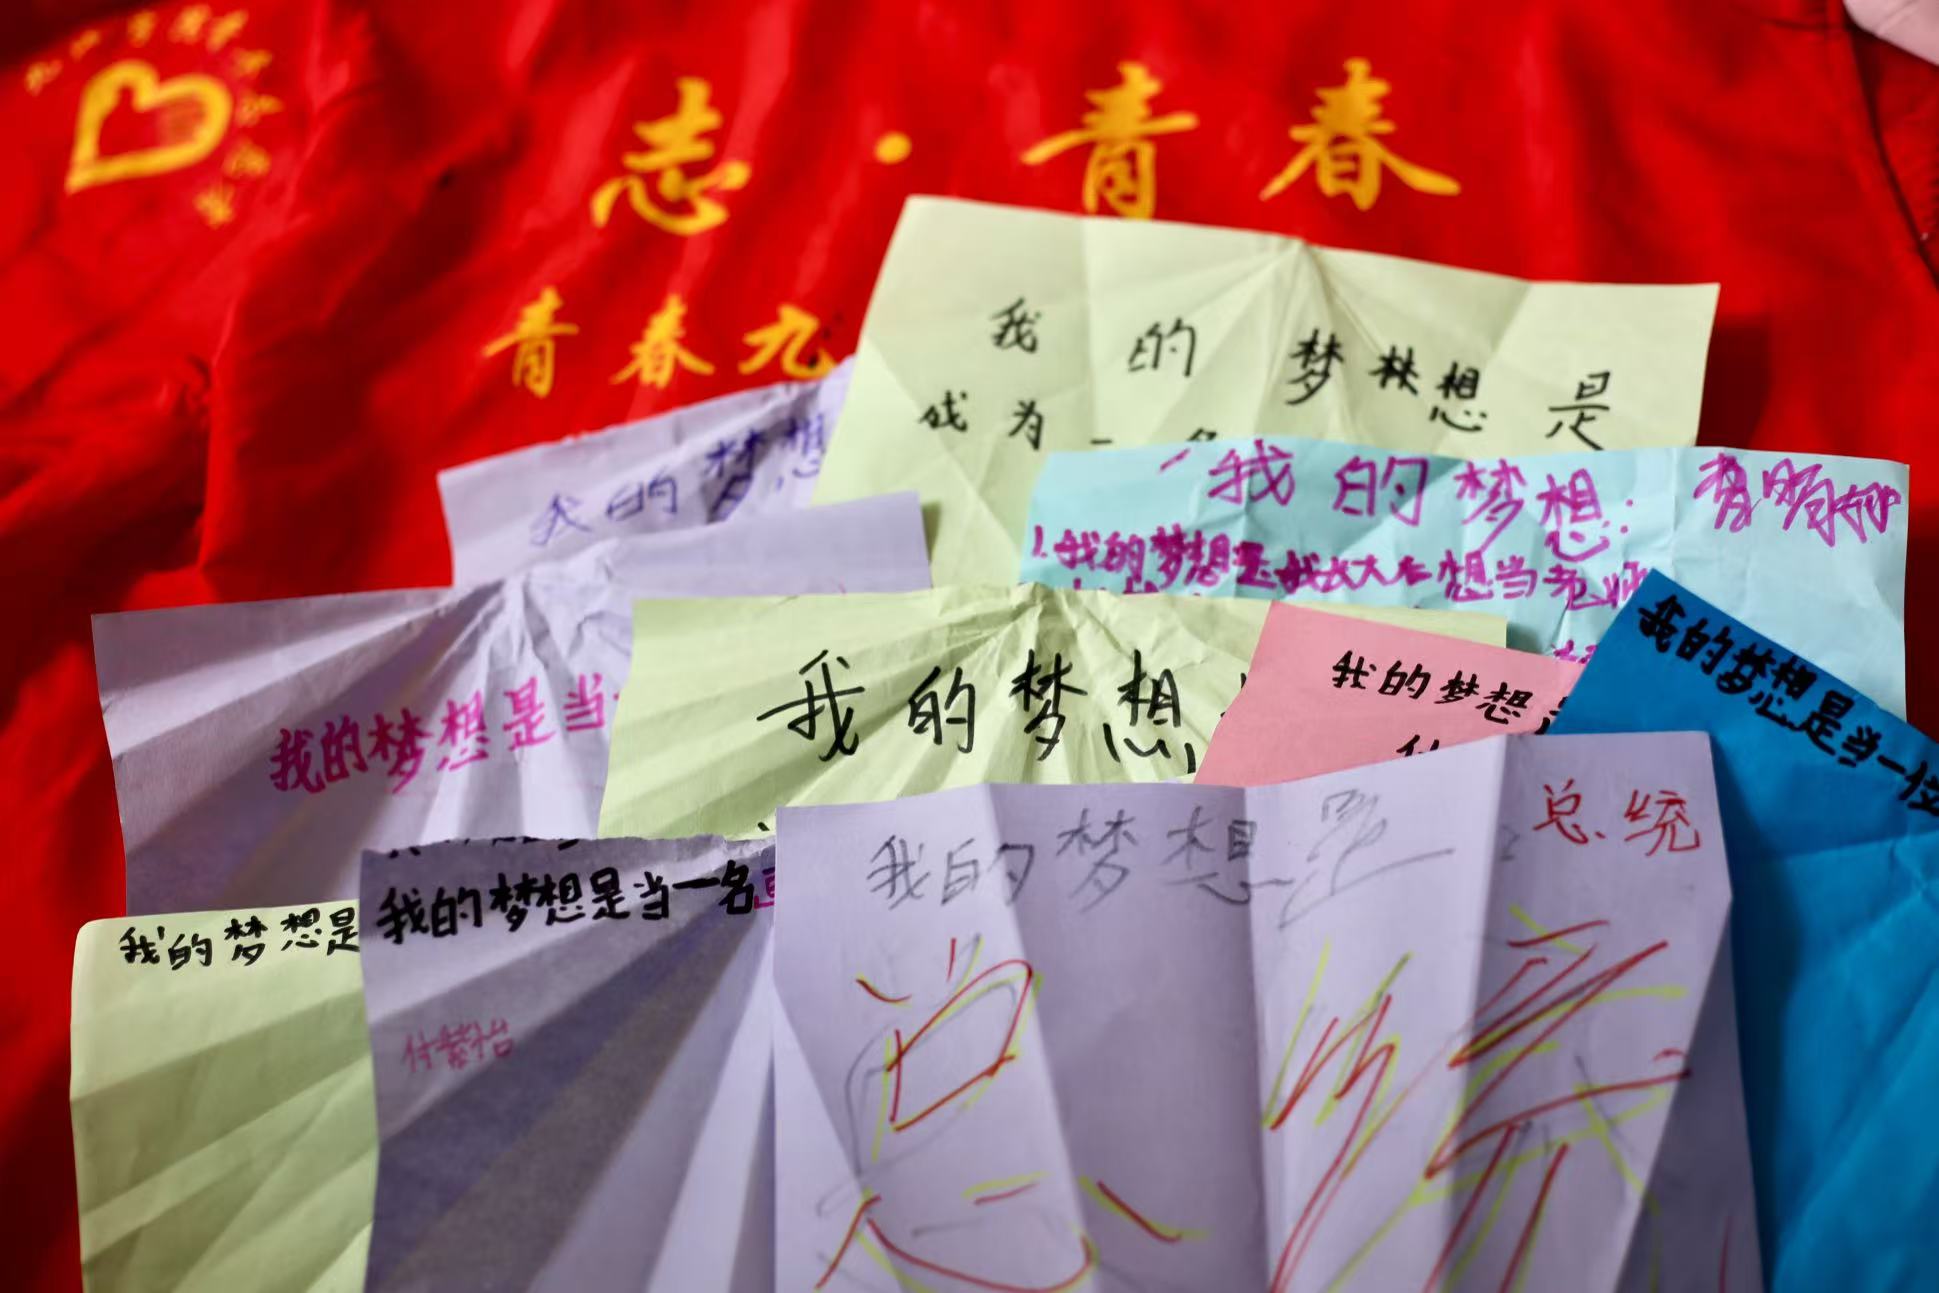 志·青春
青春九
我的梦想是
成为一名
我的梦想
我的梦想：
1.我的梦想是我长大后想当老师
我的梦想是当
我的梦想
我的梦想
我的梦想是当一位
我的梦想是
我的梦想是当一名
我的梦想是 总统
总统